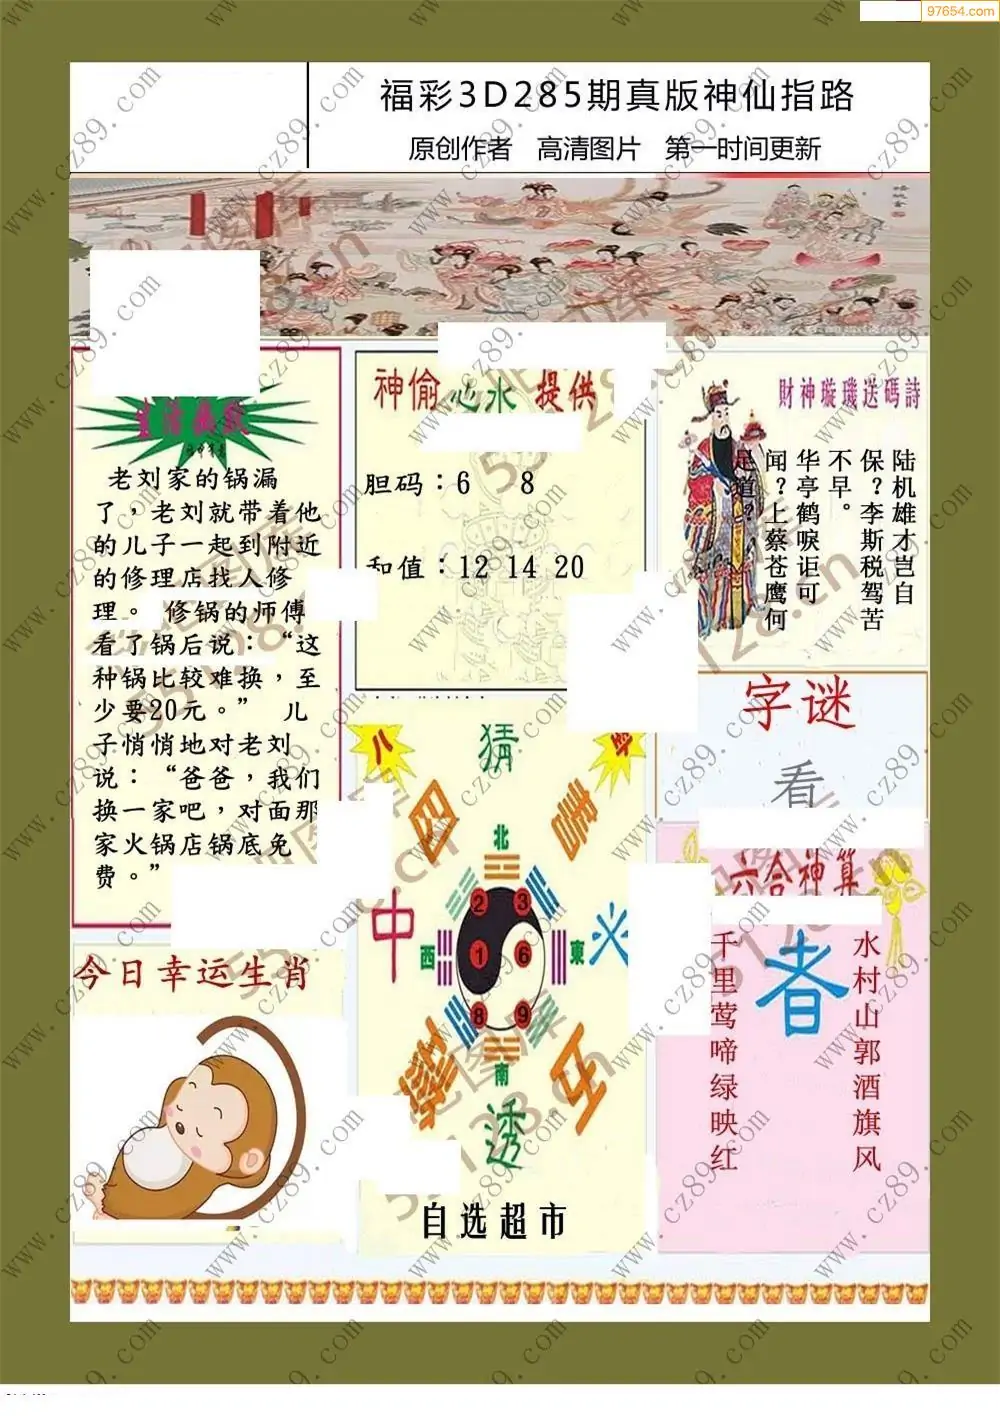 97654.com
福彩3D285期真版神仙指路
原创作者 高清图片 第一时间更新
生活幽默
老刘家的锅漏
了，老刘就带着他
的儿子一起到附近
的修理店找人修
理。 修锅的师傅
看了锅后说：“这
种锅比较难换，至
少要20元。” 儿
子悄悄地对老刘
说：“爸爸，我们
换一家吧，对面那
家火锅店锅底免
费。”
今日幸运生肖
神偷心水 提供
胆码：6 8
和值：12 14 20
財神璇璣送碼詩
陆机雄才岂自
保？李斯税驾苦
不早。
华亭鹤唳讵可
闻？上蔡苍鹰何
足道？
八
猜
图
中
北
西
東
南
2
3
1
6
8
9
透
自选超市
字谜
看
六合神算
水村山郭酒旗风
者
千里莺啼绿映红
www.cz89.com
55128.cn